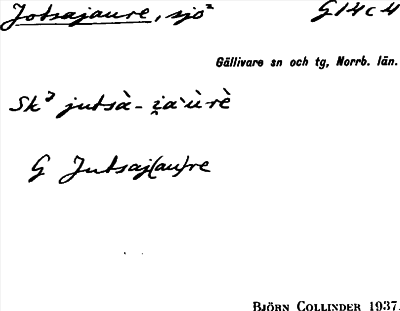 Jotsajaure, sjö² G14c4
Gällivare sn och tg, Norrb. län.
Sk³ jutsà-
G Jutsaj(au)re
BJÖRN COLLINDER 1937.